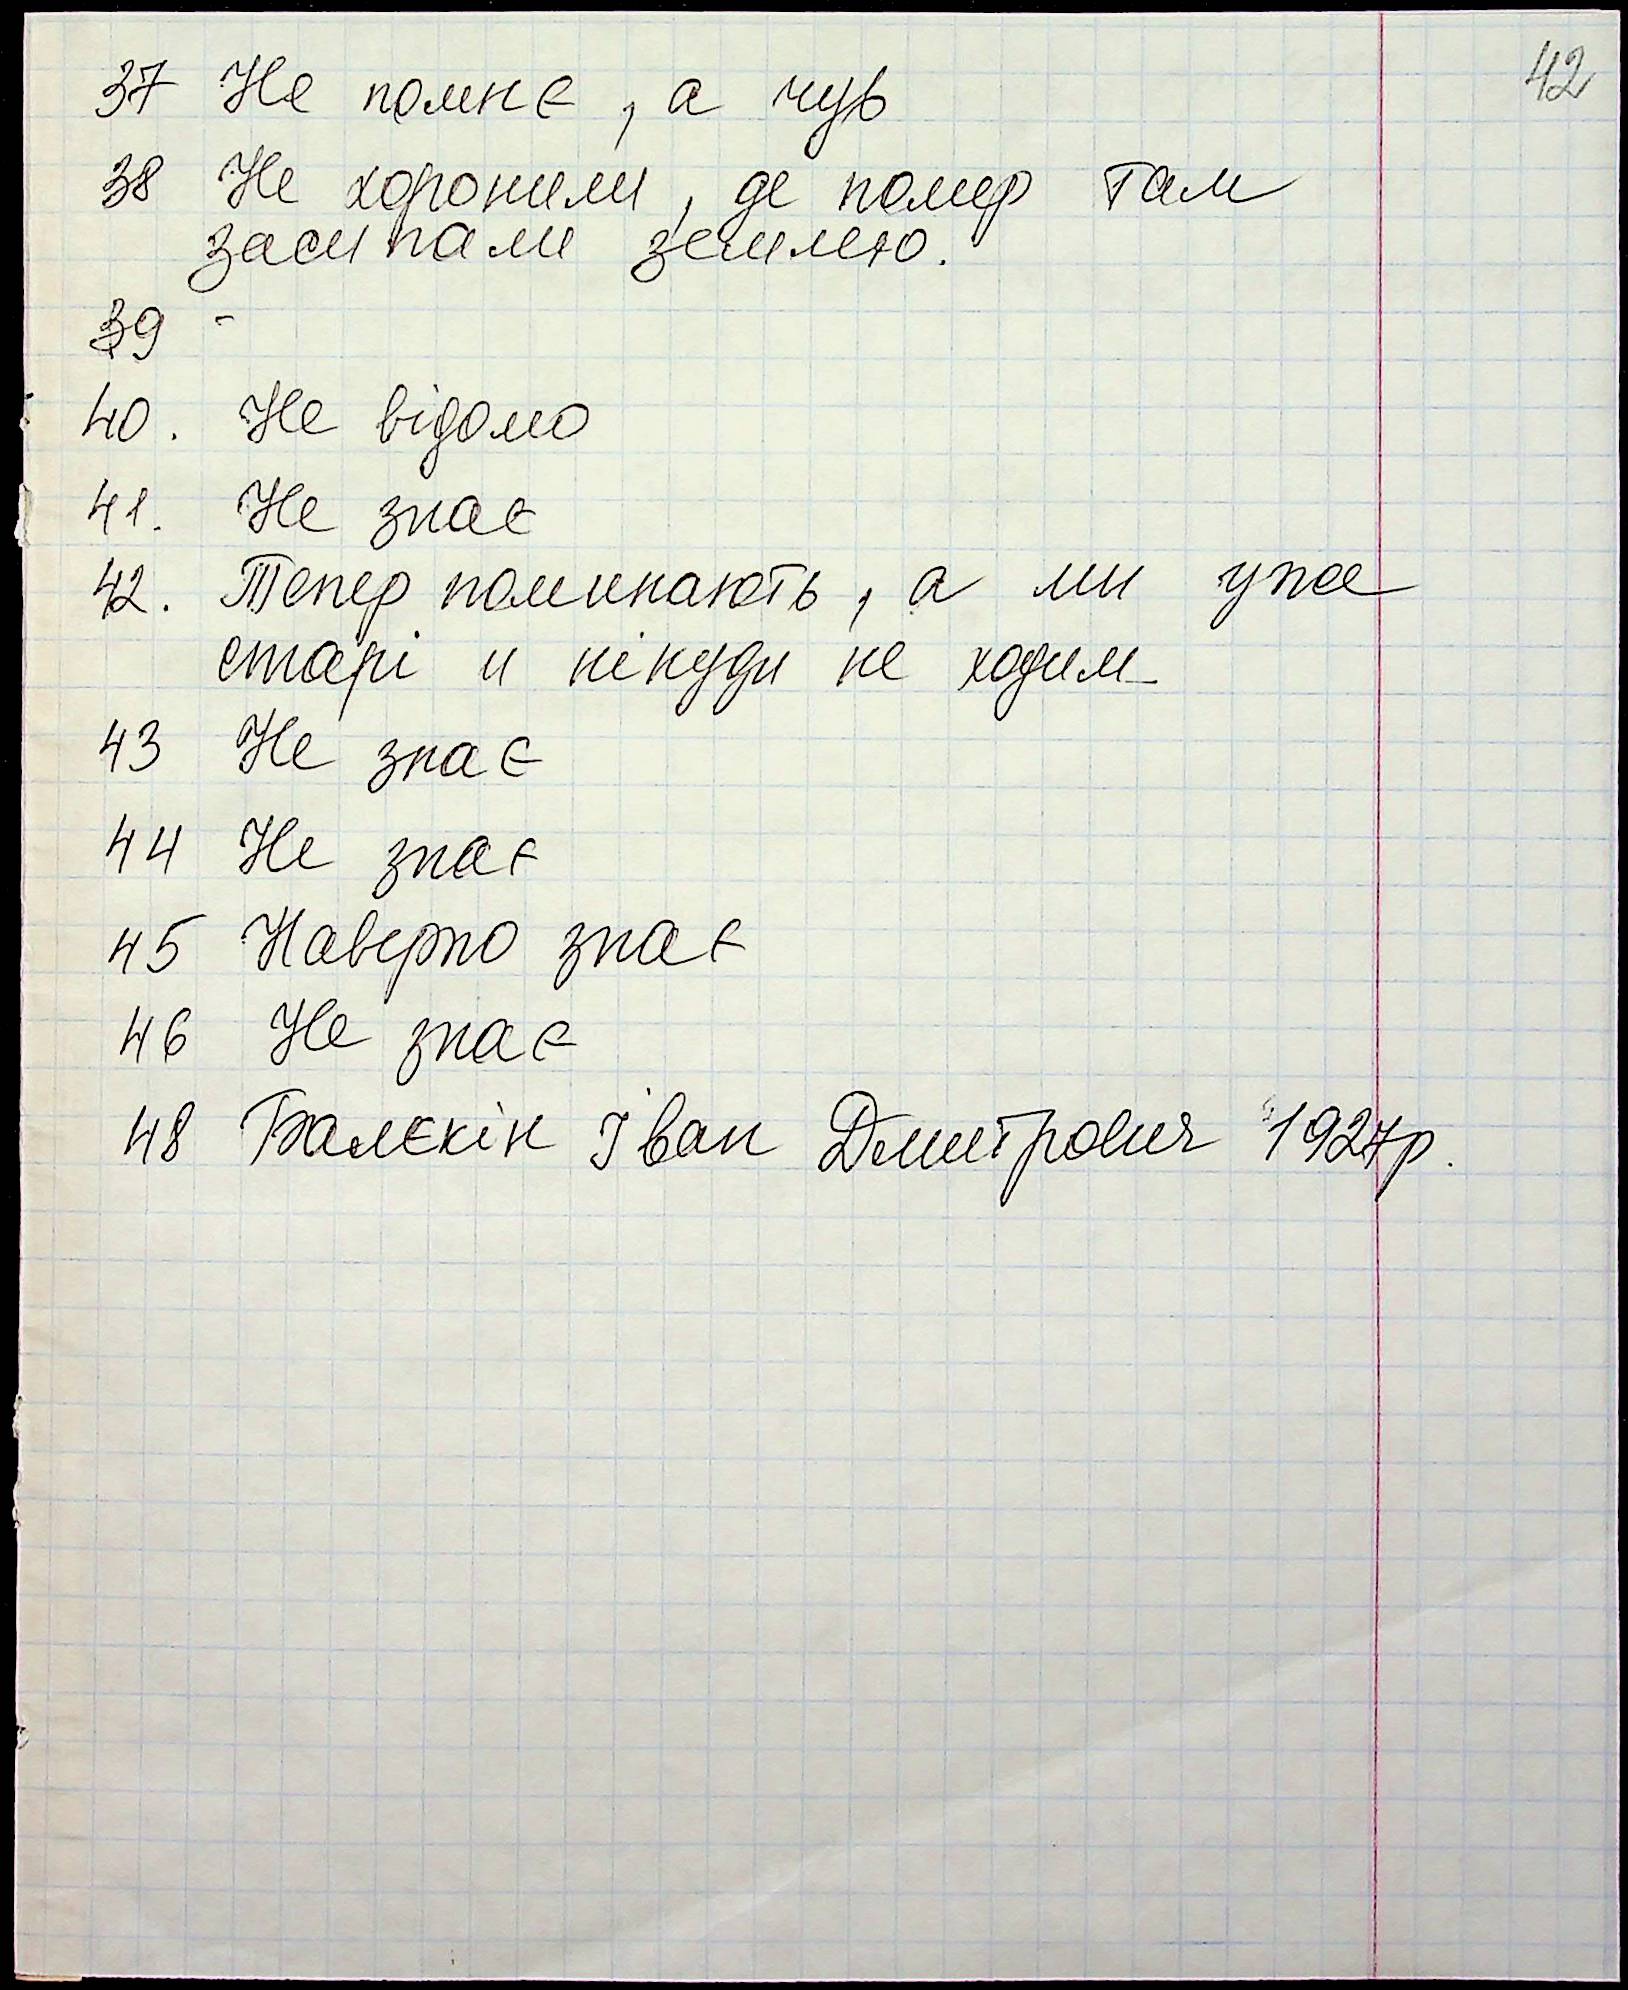 42
37 Не помнє, а чув
38 Не хоронили, де помер там
засипали землею.
39 -
40. Не відомо
41. Не знає
42. Тепер поминають, а ми уже
старі и нікуди не ходим
43 Не знає
44 Не знає
45 Наверно знає
46 Не знає
48 Балєкін Іван Дмитрович 1927р.